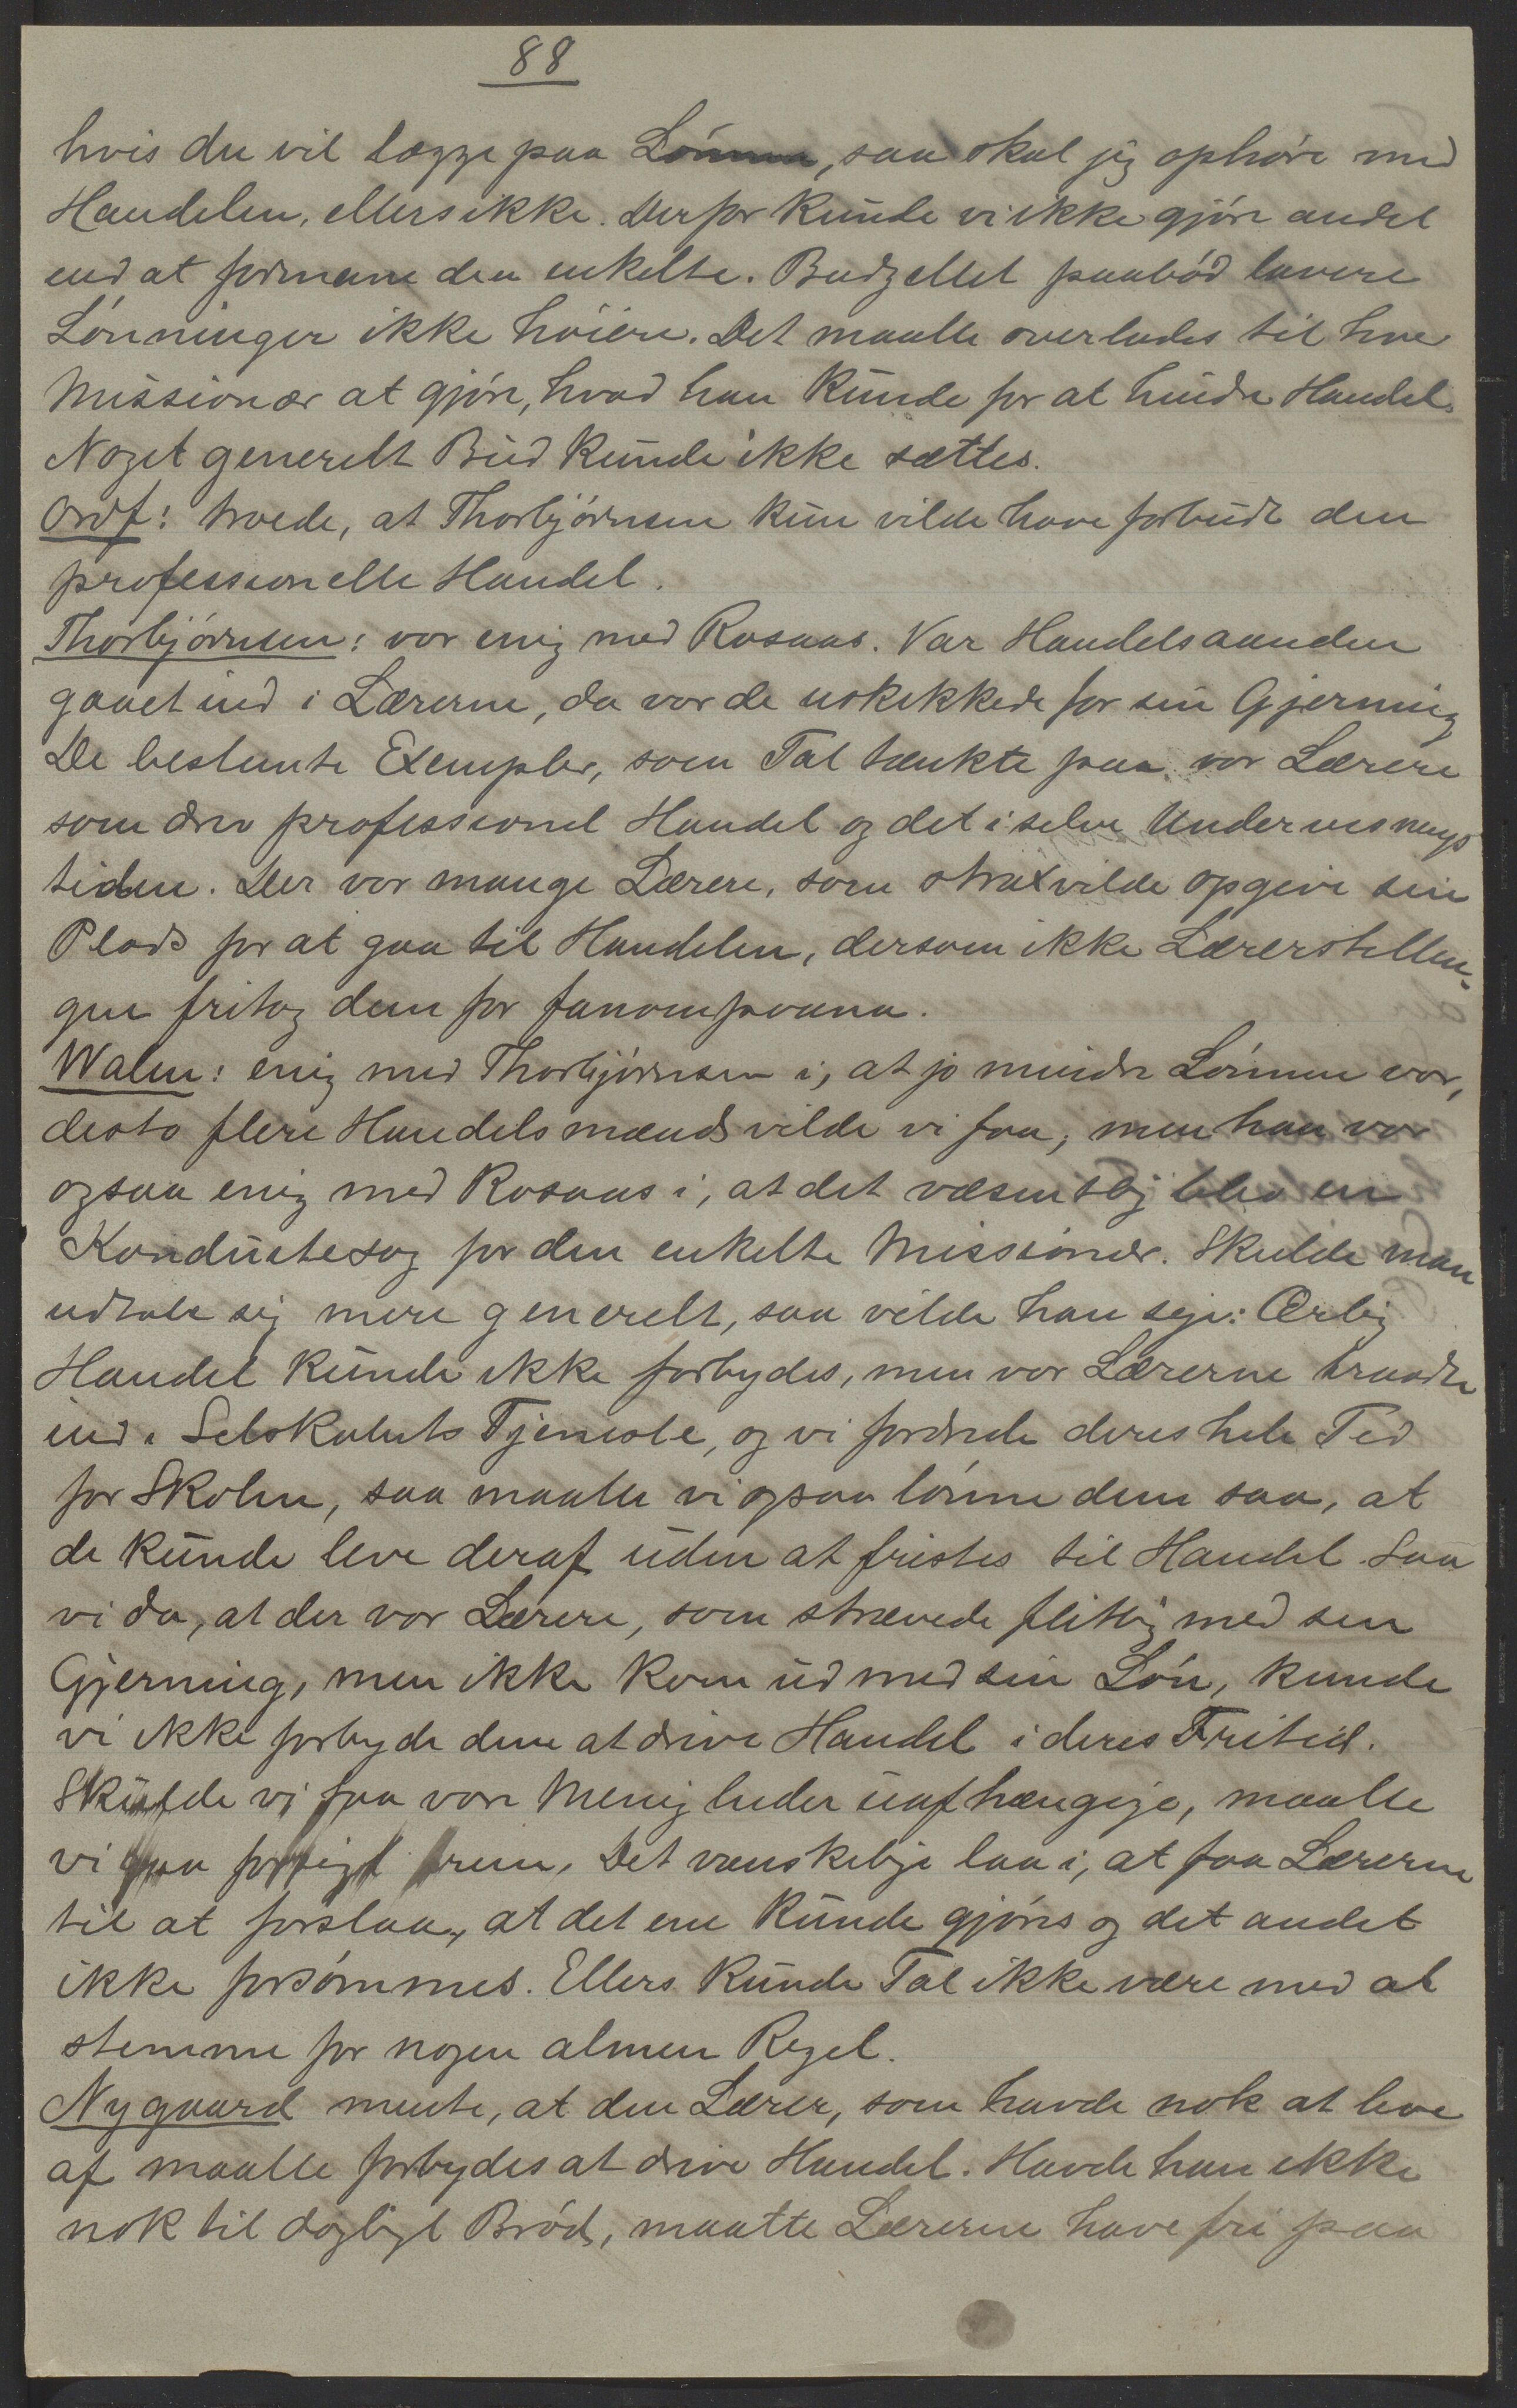 88
hvis du vil lægge paa Lönnen, saa skal jeg ophöre med
Handelen, ellers ikke. Derfor kunde vi ikke gjöre andet
end at formane den enkelte. Budgettet paabød lavere
Lönninger ikke höiere. Det maatte overlades til hver
Missionær at gjöre, hvad han kunde for at hindre Handel.
Noget generelt Bud kunde ikke sættes.
Ordf: troede, at Thorbjörnsen kun vilde have forbudt den
professionelle Handel.
Thorbjörnsen: var enig med Rosaas. Var Handelsaanden
gaaet ind i Lærerne, da var de uskikkede for sin Gjerning
De bestemte Exempler, som Tal tænkte paa, var Lærere
som drev professionel Handel og det i selve Undervisnings
tiden. Der var mange Lærere, som strax vilde opgive sin
Plads for at gaa til Handelen, dersom ikke Lærerstillin-
gen fritog dem for fanompoana.
Walen: enig med Thorbjörnsen i, at jo mindre Lönnen var,
desto flere Handelsmænd vilde vi faa, men han var
ogsaa enig med Rosaas i, at det væsentlig blev en
Konduitesag for den enkelte Missionær. Skulde man
udtale sig mere generelt, saa vilde han sige: Ærlig
Handel kunde ikke forbydes, men var Lærerne traadte
ind i Selskabets Tjeneste, og vi fordrede deres hele Tid
for Skolen, saa maatte vi ogsaa lönne dem saa, at
de kunde leve deraf uden at fristes til Handel. Saa
vi da, at der var Lærere, som strævede flittig med sin
Gjerning, men ikke kom ud med sin Lön, kunde
vi ikke forbyde dem at drive Handel i deres Fritid.
Skulde vi faa vore Menigheder uafhængige, maatte
vi gaa forsigt frem. Det vanskelige laa i, at faa Lærerne
til at forstaa, at det ene kunde gjöres og det andet
ikke forsömmes. Ellers kunde Tal ikke være med at
stemme for nogen almen Regel.
Nygaard mente, at den Lærer, som havde nok at leve
af maatte forbydes at drive Handel. Havde han ikke
nok til dagligt Bröd, maatte Lærerne have fri paa